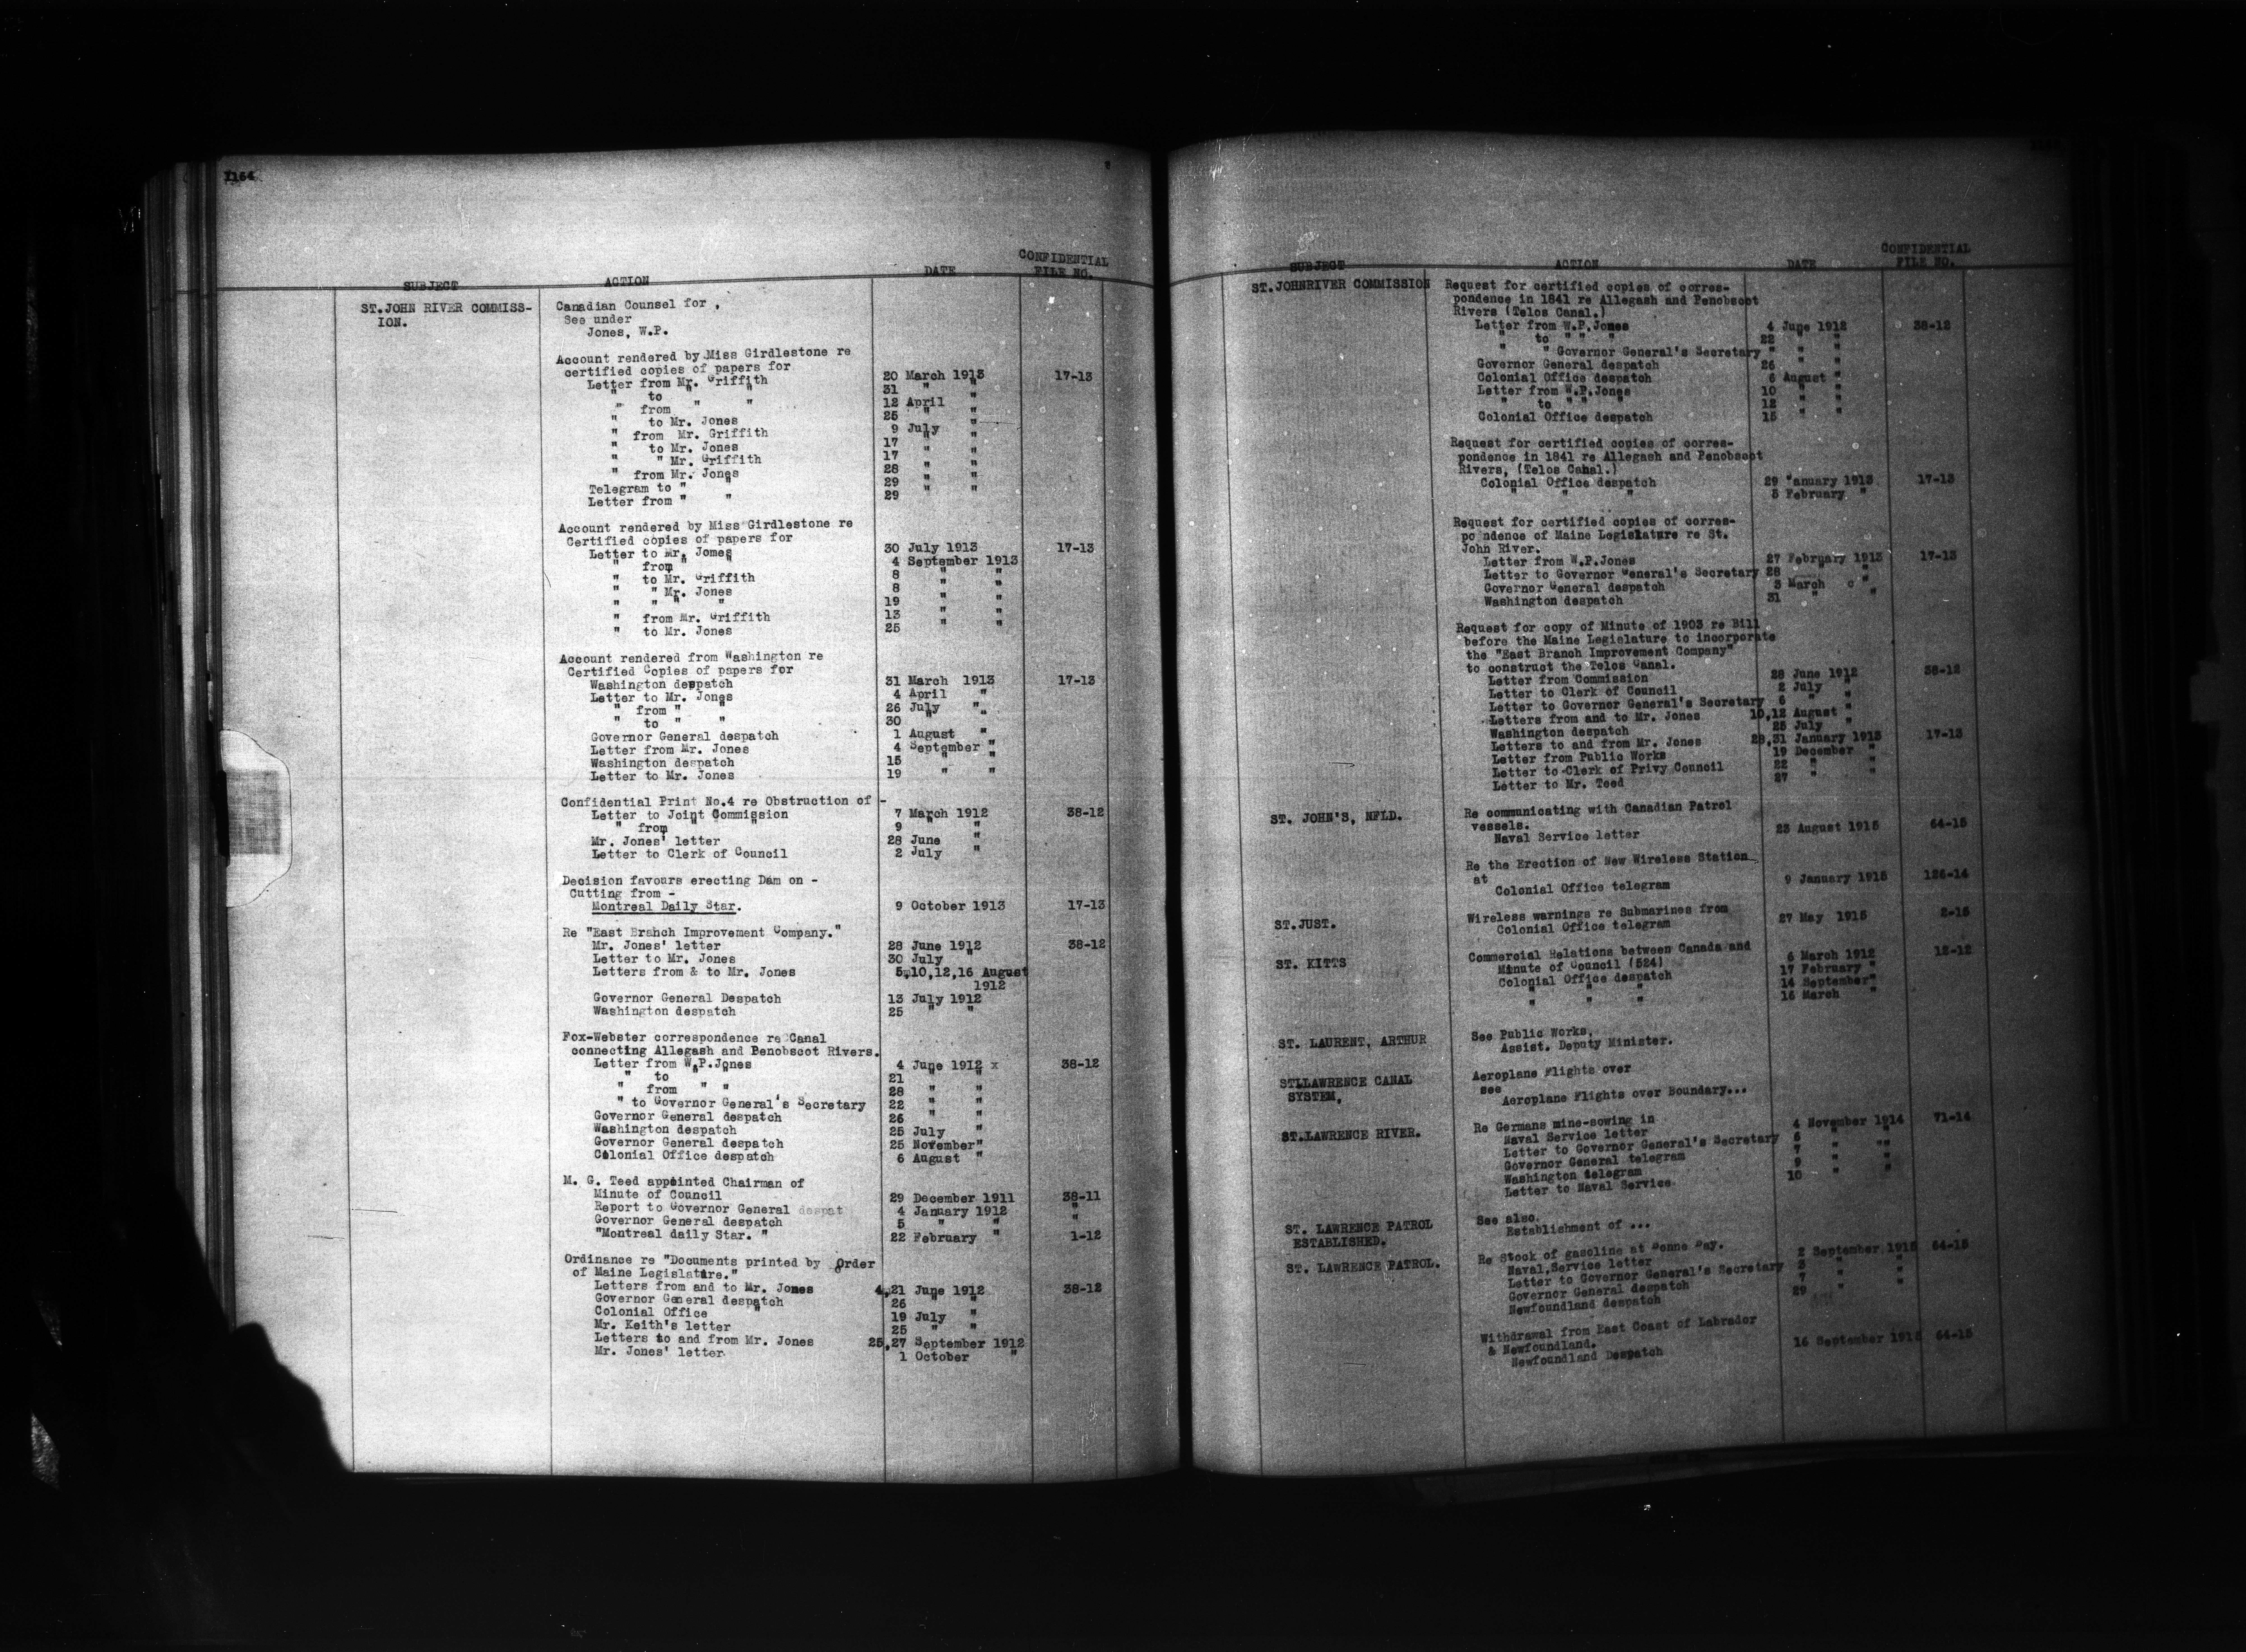 1164
SUBJECT ACTION DATE CONFIDENTIAL FILE NO.
ST.JOHN RIVER COMMISS- Canadian Counsel for ,
ION. See under
Jones, W.P.
Account rendered by Miss Girdlestone re
certified copies of papers for
Letter from Mr. Griffith 20 March 1913 17-13
" to " " 31 " "
" from " " 12 April "
" to Mr. Jones 25 " "
" from Mr. Griffith 9 July "
" to Mr. Jones 17 " "
" " Mr. Griffith 17 " "
" from Mr. Jones 28 " "
Telegram to " " 29 " "
Letter from " " 29 " "
Account rendered by Miss Girdlestone re
Certified copies of papers for
Letter to Mr. Jomes 30 July 1913 17-13
" from " " 4 September 1913
" to Mr. Griffith 8 " "
" " Mr. Jones 8 " "
" " " " 19 " "
" from Mr. Griffith 13 " "
" to Mr. Jones 25 " "
Account rendered from Washington re
Certified Copies of papers for
Washington despatch 31 March 1913 17-13
Letter to Mr. Jones 4 April "
" from " " 26 July "
" to " " 30 " "
Governor General despatch 1 August "
Letter from Mr. Jones 4 September "
Washington despatch 15 " "
Letter to Mr. Jones 19 " "
Confidential Print No.4 re Obstruction of -
Letter to Joint Commission 7 March 1912 38-12
" from " " 9 " "
Mr. Jones' letter 28 June "
Letter to Clerk of Council 2 July "
Decision favours erecting Dam on -
Cutting from -
Montreal Daily Star. 9 October 1913 17-13
Re "East Branch Improvement Company."
Mr. Jones' letter 28 June 1912 38-12
Letter to Mr. Jones 30 July "
Letters from & to Mr. Jones 5,10,12,16 August
1912
Governor General Despatch 13 July 1912
Washington despatch 25 " "
Fox-Webster correspondence re Canal
connecting Allegash and Penobscot Rivers.
Letter from W.P.Jones 4 June 1912 x 38-12
" to " " 21 " "
" from " " 28 " "
" to Governor General's Secretary 22 " "
Governor General despatch 26 " "
Washington despatch 25 July "
Governor General despatch 25 November"
Colonial Office despatch 6 August "
M. G. Teed appointed Chairman of
Minute of Council 29 December 1911 38-11
Report to Governor General despat 4 January 1912 "
Governor General despatch 5 " " "
"Montreal daily Star. " 22 February " 1-12
Ordinance re "Documents printed by Order
of Maine Legislature."
Letters from and to Mr. Jones 4,21 June 1912 38-12
Governor General despatch 26 " "
Colonial Office " 19 July "
Mr. Keith's letter 25 " "
Letters to and from Mr. Jones 25,27 September 1912
Mr. Jones' letter 1 October "
SUBJECT ACTION DATE CONFIDENTIAL FILE NO.
ST.JOHNRIVER COMMISSION Request for certified copies of corres-
pondence in 1841 re Allegash and Penobscot
Rivers (Telos Canal.)
Letter from W.P.Jones 4 June 1912 38-12
" to " " " 22 " "
" " Governor General's Secretary " " "
Governor General despatch 26 " "
Colonial Office despatch 6 August "
Letter from W.P.Jones 10 " "
" to " " " 12 " "
Colonial Office despatch 15 " "
Request for certified copies of corres-
pondence in 1841 re Allegash and Penobscot
Rivers, (Telos Canal.)
Colonial Office despatch 29 January 1913 17-13
" " " 3 February "
Request for certified copies of corres-
pondence of Maine Legislature re St.
John River.
Letter from W.P.Jones 27 February 1913 17-13
Letter to Governor General's Secretary 28 " "
Governor General despatch 3 March "
Washington despatch 31 " "
Request for copy of Minute of 1903 re Bill
before the Maine Legislature to incorporate
the "East Branch Improvement Company"
to construct the Telos Canal.
Letter from Commission 28 June 1912 38-12
Letter to Clerk of Council 2 July "
Letter to Governor General's Secretary 6 " "
Letters from and to Mr. Jones 10,12 August "
Washington despatch 25 July "
Letters to and from Mr. Jones 28,31 January 1913 17-13
Letter from Public Works 19 December "
Letter to Clerk of Privy Council 22 " "
Letter to Mr. Teed 27 " "
ST. JOHN'S, NFLD. Re communicating with Canadian Patrol
vessels.
Naval Service letter 23 August 1915 64-15
Re the Erection of New Wireless Station
at
Colonial Office telegram 9 January 1915 126-14
ST.JUST. Wireless warnings re Submarines from
Colonial Office telegram 27 May 1915 2-15
ST. KITTS Commercial Relations between Canada and
Minute of Council (524) 6 March 1912 12-12
Colonial Office despatch 17 February "
" " " 14 September"
" " " 16 March "
ST. LAURENT, ARTHUR See Public Works,
Assist. Deputy Minister.
STLLAWRENCE CANAL Aeroplane Flights over
SYSTEM, see
Aeroplane Flights over Boundary...
ST.LAWRENCE RIVER. Re Germans mine-sowing in
Naval Service letter 4 November 1914 71-14
Letter to Governor General's Secretary 5 " "
Governor General telegram 7 " "
Washington telegram 9 " "
Letter to Naval Service 10 " "
ST. LAWRENCE PATROL See also.
ESTABLISHED. Establishment of ...
ST. LAWRENCE PATROL. Re Stock of gasoline at Bonne Bay.
Naval Service letter 2 September 1915 64-15
Letter to Governor General's Secretary 3 " "
Governor General despatch 7 " "
Newfoundland despatch 29 " "
Withdrawal from East Coast of Labrador
& Newfoundland.
Newfoundland Despatch 16 September 1915 64-15